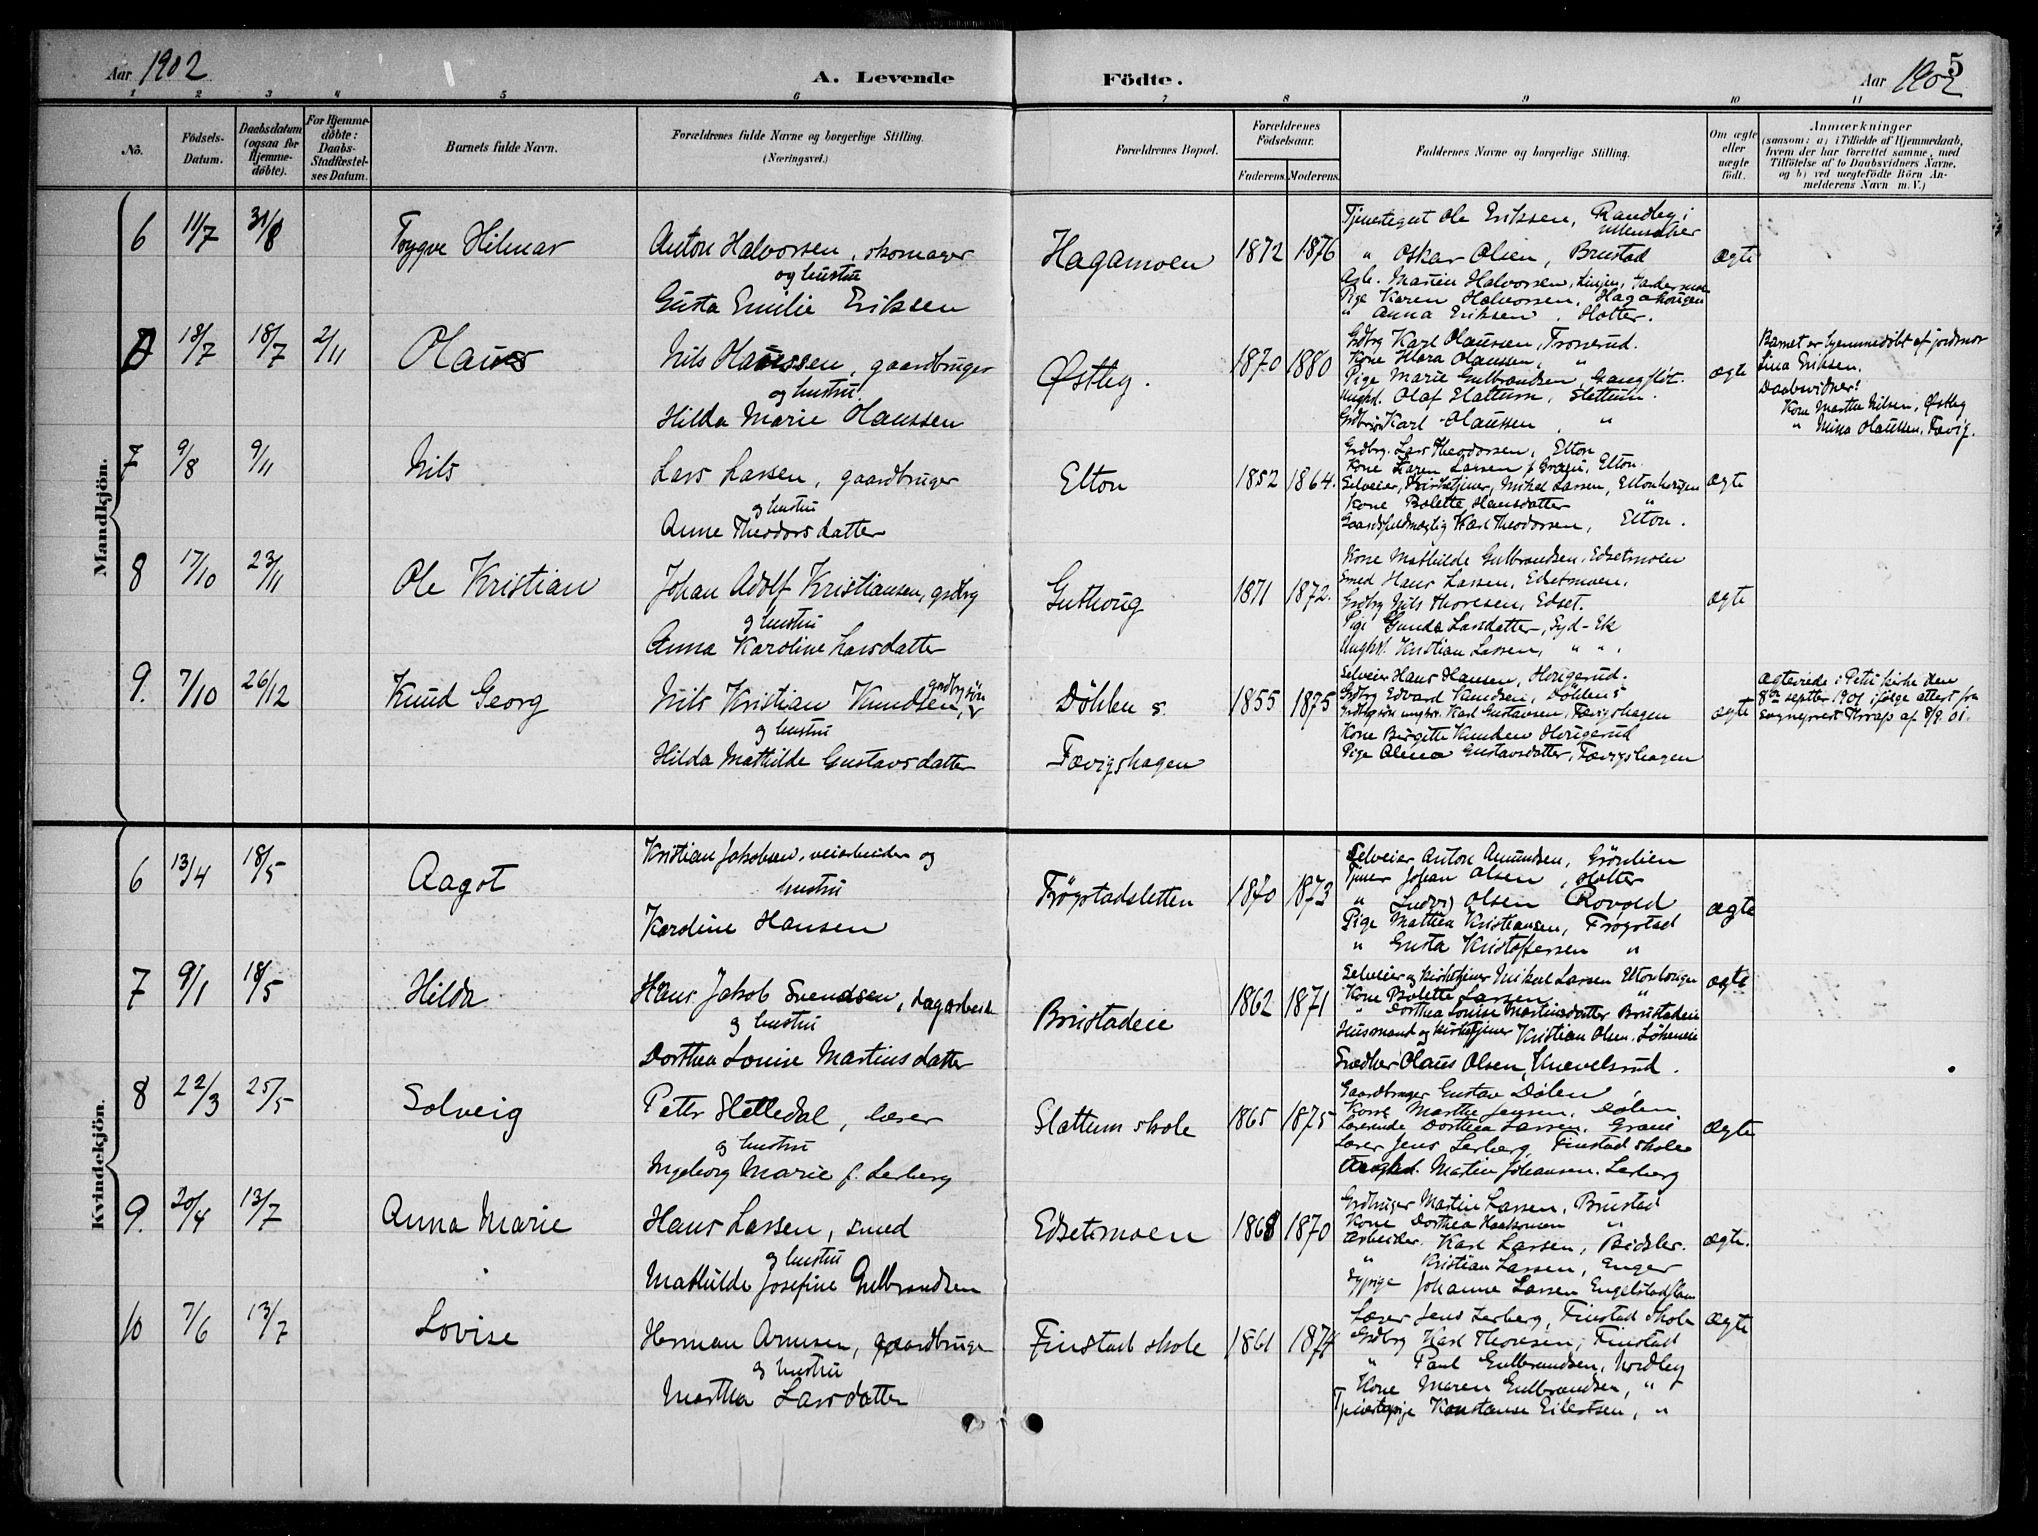 Aar 1902
A. Levende
Födte.
Aar 1902
5
1 2 3 4 5 6 7 8 9 10 11
No.
Födsels-Datum.
Daabsdatum (ogsaa for Hjemme-döbte).
For Hjemme-döbte: Daabs-Stadfæstel-ses Datum.
Barnets fulde Navn.
Forældrenes fulde Navne og borgerlige Stilling.
(Næringsvei.)
Forældrenes Bopæl.
Forældrenes Födselsaar.
Faderens. Moderens.
Faddernes Navne og borgerlige Stilling.
Om ægte eller uægte födt.
Anmærkninger
(saasom: a) i Tilfælde af Hjemmedaab, hvem der har forrettet samme, med Tilföielse af to Daabsvidners Navne, og b) ved uægtefödte Börn Anmelderens Navn m. V.)
Mandkjön.
6 11/7 31/8 Trygve Hilmar
Anton Halvorsen, skomager
og hustru
Gusta Emilie Eriksen
Hagamoen 1872 1876
Tjenestegut Ole Eriksen, Randby i Ullensaker
" Oskar Olsen, Brustad
Karen Halvorsen, Hagahaugen
" Anna Eriksen, Holter.
ægte
18/7 18/7 2/11 Olaus
Nils Olaussen, gaardbruger
og hustru
Hilda Marie Olaussen
Østby. 1870 1880
Grdbrg Karl Olaussen, Tronerud.
Kone Klara Olaussen, "
Pige Marie Gulbrandsen, Gangfløt.
Ungkl. Olaf Slattum, Slattum.
Karl Olaussen, "
ægte
Barnet er hjemmedøbt af jordmor
Lina Eriksen.
Daabsvidner:
Kone Marthe Nilsen, Østby
" Mina Olaussen, Fævig.
7 9/8 9/11 Nils
Lars Larsen, gaardbruger
og hustru
Anne Theodorsdatter
Elton 1852 1864.
Grdbrg. Lars Theodorsen, Elton
Kone Karen Larsen f. Græni, Elton.
Selveier, Kirketjener, Mikal Larsen, Eltonhaugen
Kone Bolette Hansdatter "
Gaardsfuldmægtig Karl Theodorsen, Elton.
ægte
8 17/10 23/11 Ole Kristian
Johan Adolf Kristiansen, grdbrg
og hustru
Anna Karoline Larsdatter
Guthoug 1871 1872.
Kone Mathilde Gulbrandsen, Edsetmoen
Smed Hans Larsen, Edsetmoen.
Grdbrg Nils Thoresen, Edset.
Pige Gunda Larsdatter, Syd-Ek
Ungkl. Kristian Larsen, " ".
ægte
9. 7/10 26/12 Knud Georg
Nils Kristian Knudsen, gårdbrgsøn
og hustru
Hilda Mathilde Gustavsdatter
Döhlen s.
Fævigshagen
1855 1875
Selveier Hans Hansen, Horigerud.
Grdbrg Edvard Knudsen, Döhlen s
Karl Gustavsen, Fævigshagen
Kone Birgitte Knudsen Horigerud
Pige Olena Gustavsdatter, Fævigshagen
ægte
ægteviede i Petri kirke den
8de septbr 1901 ifølge attest fra
sogneprest Knap af 8/9. 01.
Kvindekjön.
6 13/4 18/5 Aagot
Kristian Jakobsen, veiarbeider og
hustru
Karoline Hansen
Frögstadsletten 1870 1873
Selveier Anton Amundsen, Grönlien
Tjener Johan Olsen, Holter
" Ludvig Olsen Rovold
Pige Mathea Kristiansen, Frogstad
" Gusta Kristoffersen "
ægte
7 9/1 18/5 Hilda
Hans Jakob Svendsen, dagarbeider
og hustru
Dorthea Louise Martinsdatter
Brustadeie 1862 1871
Selveier og Kirketjener Mikael Larsen Eltonhaugen
Kone Bolette Larsen "
" Dorthea Louise Martinsdatter Brustadeie
Husmand og kirketjener Kristian Olsen.
Snedker Olaus Olsen, Knevelsrud.
ægte
8 22/3 25/5 Solveig
Peter Helledal, lærer
og hustru
Ingeborg Marie f. Lerberg
Slattum skole 1865 1875
Gaardbruger Gustav Dølen,
Kone Marthe Jensen, Dølen.
Lærerinde Dorthea Larsen, Græni
Lærer Jens Lerberg, Finstad skole
Ungkarl. Martin Johansen. Lerberg
ægte
9. 20/4 13/7 Anna Marie
Hans Larsen, smed
og hustru
Mathilde Josefine Gulbrandsen
Edsetmoen 1868 1870
Grdbruger Martin Larsen, Brustad
Kone Dorthea Haakonsen "
Arbeider. Karl Larsen, Bidsler.
" Kristian Larsen, Enger
Sypige Johanne Larsen
ægte.
10 7/6 13/7 Lovise
Herman Arnesen, gaardbruger
og hustru
Martha Larsdatter
Finstad skole 1861 1874
Lærer Jens Lerberg, Finstad skole
Grdbrg Karl Thoresen, Finstad
" Paul Gulbrandsen, Nordby
Kone Maren Gulbrandsen, "
Tjenestepige Konstanse Eilertsen, "
ægte